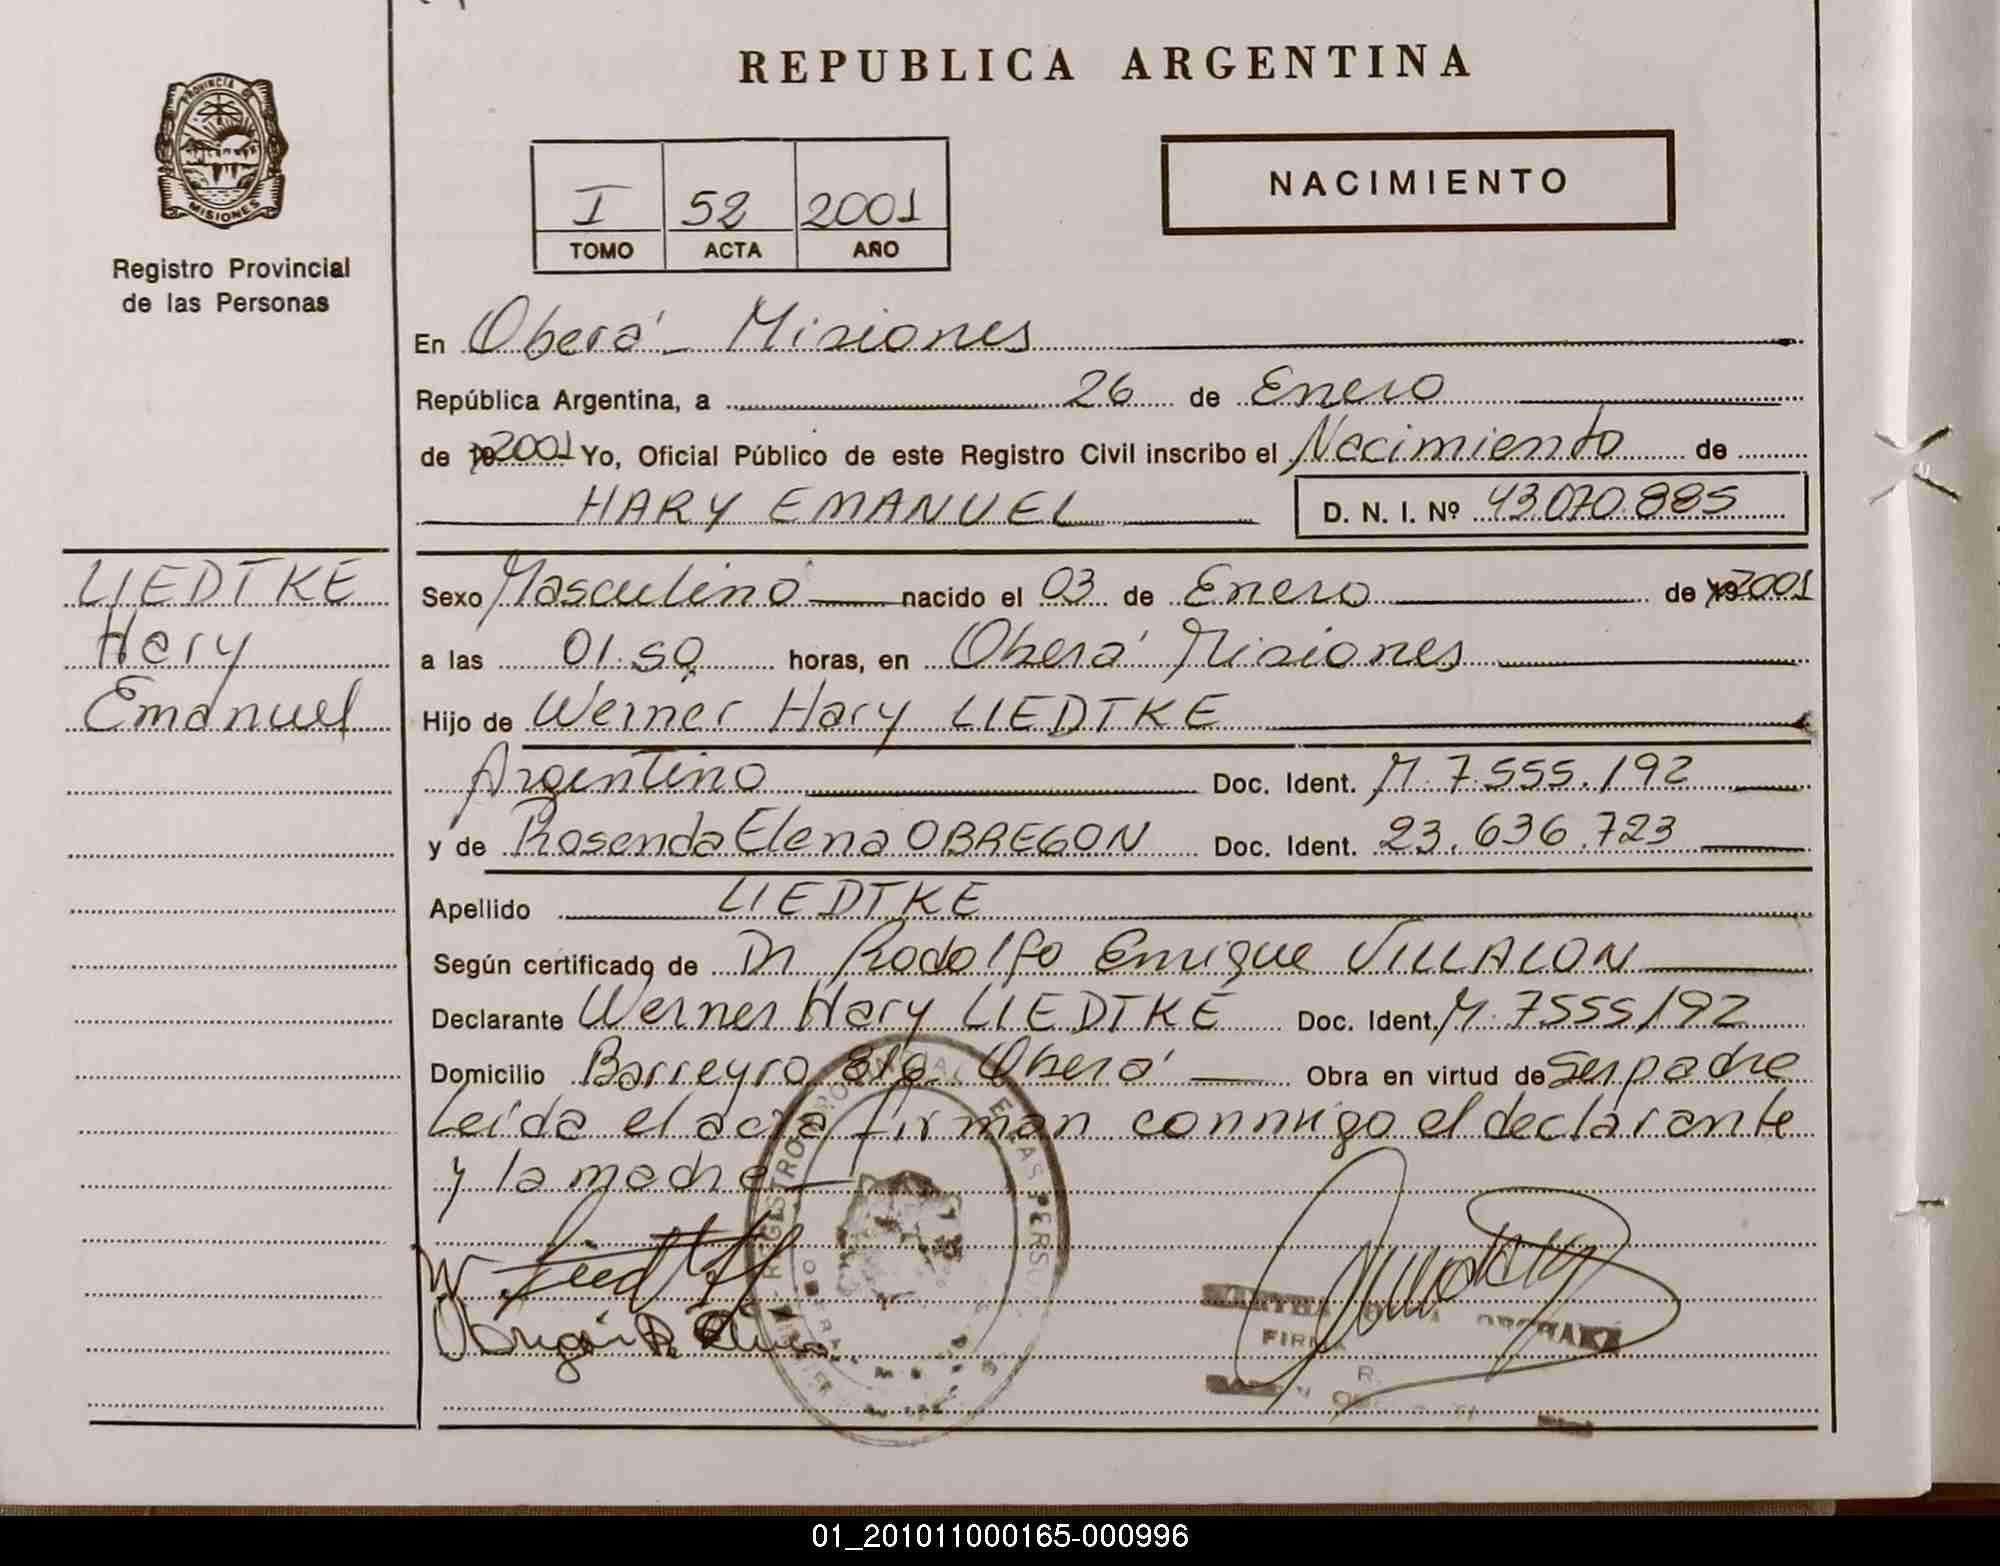 REPUBLICA ARGENTINA
PROVINCIA DE
MISIONES
Registro Provincial
de las Personas
I 52 2001
TOMO ACTA AÑO
NACIMIENTO
En Oberá - Misiones
República Argentina, a 26 de Enero
de 2001 Yo, Oficial Público de este Registro Civil inscribo el Nacimiento de
HARY EMANUEL D. N. I. Nº 43.070.885
LIEDTKE
Hary
Emanuel
Sexo Masculino nacido el 03 de Enero de 2001
a las 01.50 horas, en Oberá Misiones
Hijo de Werner Hary LIEDTKE
Argentino Doc. Ident. M. 7.555.192
y de Rosenda Elena OBREGON Doc. Ident. 23.636.723
Apellido LIEDTKE
Según certificado de Dr Rodolfo Enrique VILLALON
Declarante Werner Hary LIEDTKE Doc. Ident. M. 7555192
Domicilio Barreyro Oberá Obra en virtud de Ser padre
Leída el acta firman conmigo el declarante
y la madre
01_201011000165-000996